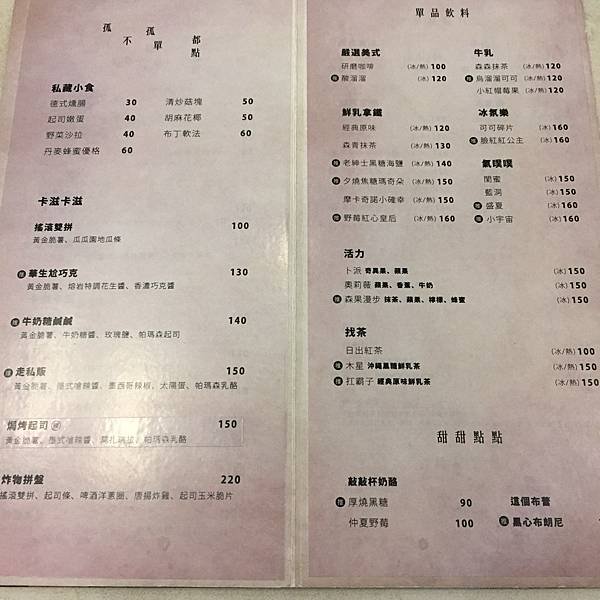 孤 孤 都
不 單 點
私藏小食
德式燻腸 30 清炒菇塊 50
起司嫩蛋 40 胡麻花椰 50
野菜沙拉 40 布丁軟法 60
丹麥蜂蜜優格 60
卡滋卡滋
搖滾雙拼 100
黃金脆薯、瓜瓜園地瓜條
推 華生尬巧克 130
黃金脆薯、熔岩特調花生醬、香濃巧克醬
推 牛奶糖鹹鹹 140
黃金脆薯、牛奶糖醬、玫瑰鹽、帕瑪森起司
推 走私販 150
黃金脆薯、墨式嗆辣醬、墨西哥辣椒、太陽蛋、帕瑪森乳酪
焗烤起司 推 150
黃金脆薯、墨式嗆辣醬、莫扎瑞拉、帕瑪森乳酪
炸物拼盤 220
搖滾雙拼、起司條、啤酒洋蔥圈、唐揚炸雞、起司玉米脆片
單品飲料
嚴選美式
研磨咖啡 (冰/熱) 100
推 酸溜溜 (冰) 120
牛乳
森森抹茶 (冰/熱) 120
推 烏溜溜可可 (冰/熱) 120
小紅帽莓果 (冰/熱) 120
鮮乳拿鐵
經典原味 (冰/熱) 120
森青抹茶 (冰/熱) 130
推 老紳士黑糖海鹽 (冰/熱) 140
推 夕燒焦糖瑪奇朵 (冰/熱) 150
摩卡奇諾小確幸 (冰/熱) 150
推 野莓紅心皇后 (冰/熱) 160
冰氛樂
可可碎片 (冰) 160
推 臉紅紅公主 (冰) 160
氣噗噗
閨蜜 (冰) 150
藍洞 (冰) 150
推 盛夏 (冰) 160
推 小宇宙 (冰) 160
活力
卜派 奇異果、蘋果 (冰) 150
奧莉薇 蘋果、香蕉、牛奶 (冰) 150
推 森果漫步 抹茶、蘋果、檸檬、蜂蜜 (冰) 150
找茶
日出紅茶 (冰/熱) 100
推 木星 沖繩黑糖鮮乳茶 (冰/熱) 150
推 扛霸子 經典原味鮮乳茶 (冰/熱) 150
甜甜點點
敲敲杯奶酪
推 厚燒黑糖 90
仲夏野莓 100
這個布蕾
推 黑心布朗尼